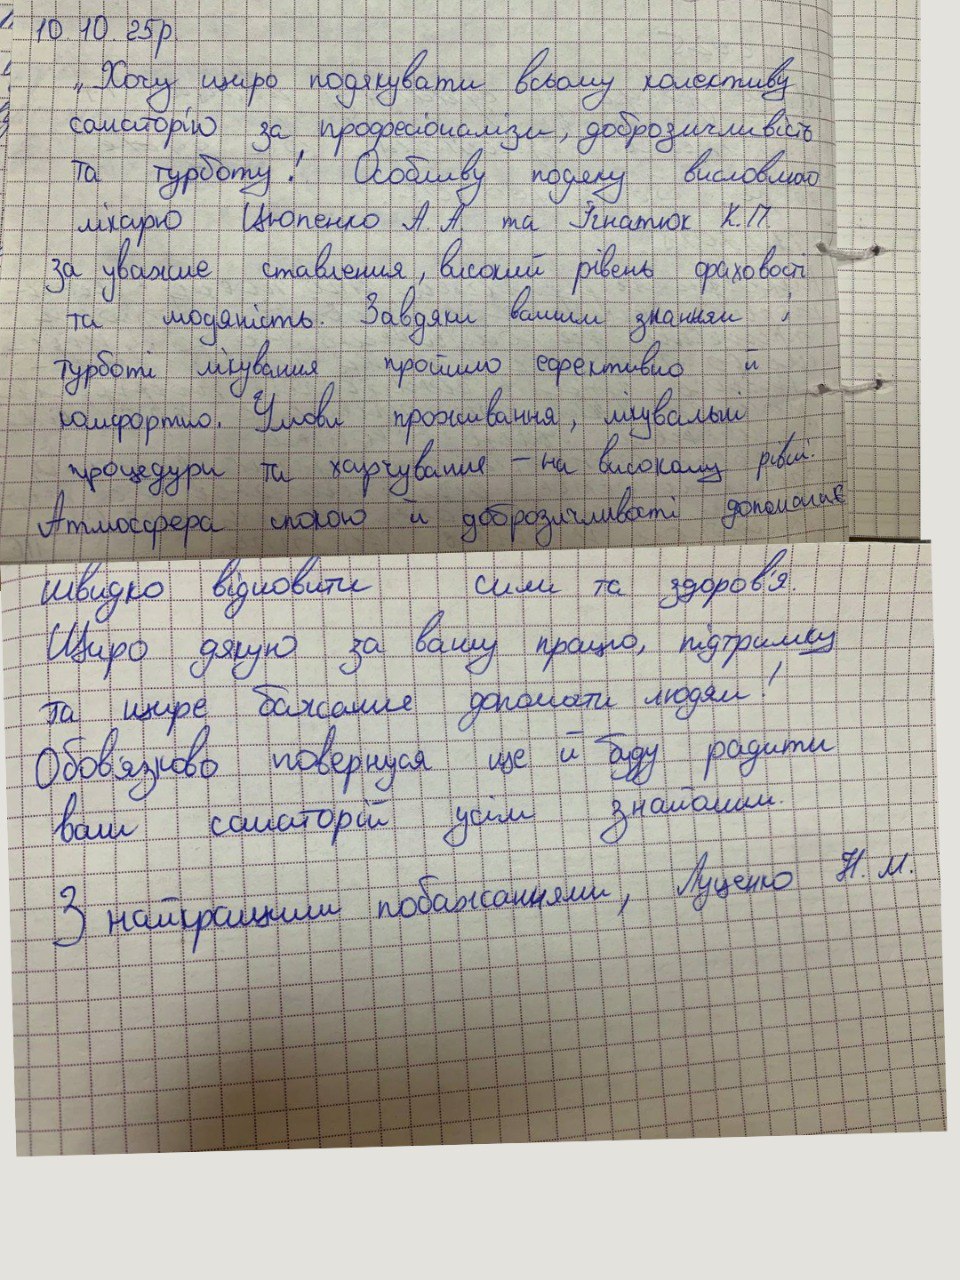 10 10. 25р.
„Хочу щиро подякувати всьому колективу
санаторію за професіоналізм, доброзичливість
та турботу! Особливу подяку висловлюю
лікарю Цюпенко А А та Ігнатюк К.П.
за уважне ставлення, високий рівень фаховості
та людяність. Завдяки вашим знанням і
турботі лікування пройшло ефективно й
комфортно. Умови проживання, лікувальні
процедури та харчування – на високому рівні.
Атмосфера спокою й доброзичливості допомагає
швидко відновити сили та здоров'я.
Щиро дякую за вашу працю, підтримку
та щире бажання допомагати людям!
Обов'язково повернуся ще й буду радити
ваш санаторій усім знайомим.
З найкращими побажаннями, Луценко Н. М.